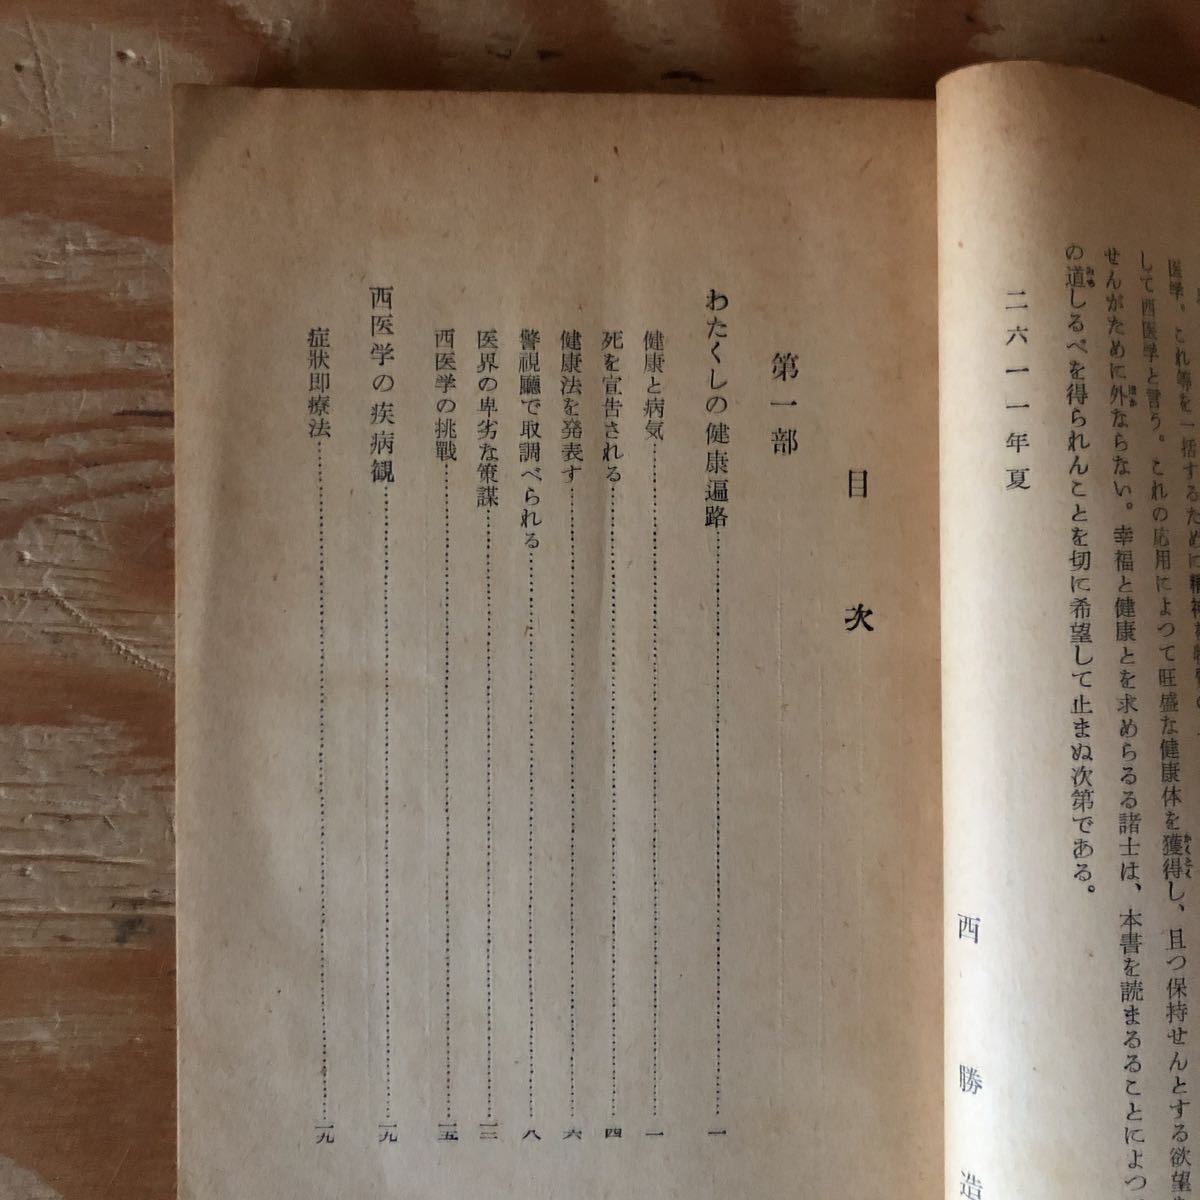 医学。これ等を一括するために精神
して西医学と言う。これの応用によつて旺盛な健康体を獲得し、且つ保持せんとする欲望
せんがために外ならない。幸福と健康とを求めらるる諸士は、本書を読まるることによつ
の道しるべを得られんことを切に希望して止まぬ次第である。
二六一一年夏
西勝造
目次
第一部
わたくしの健康遍路……一
健康と病気……一
死を宣告される……四
健康法を発表す……六
警視廳で取調べられる……八
医界の卑劣な策謀……一二
西医学の挑戰……一五
西医学の疾病観……一九
症狀即療法……一九